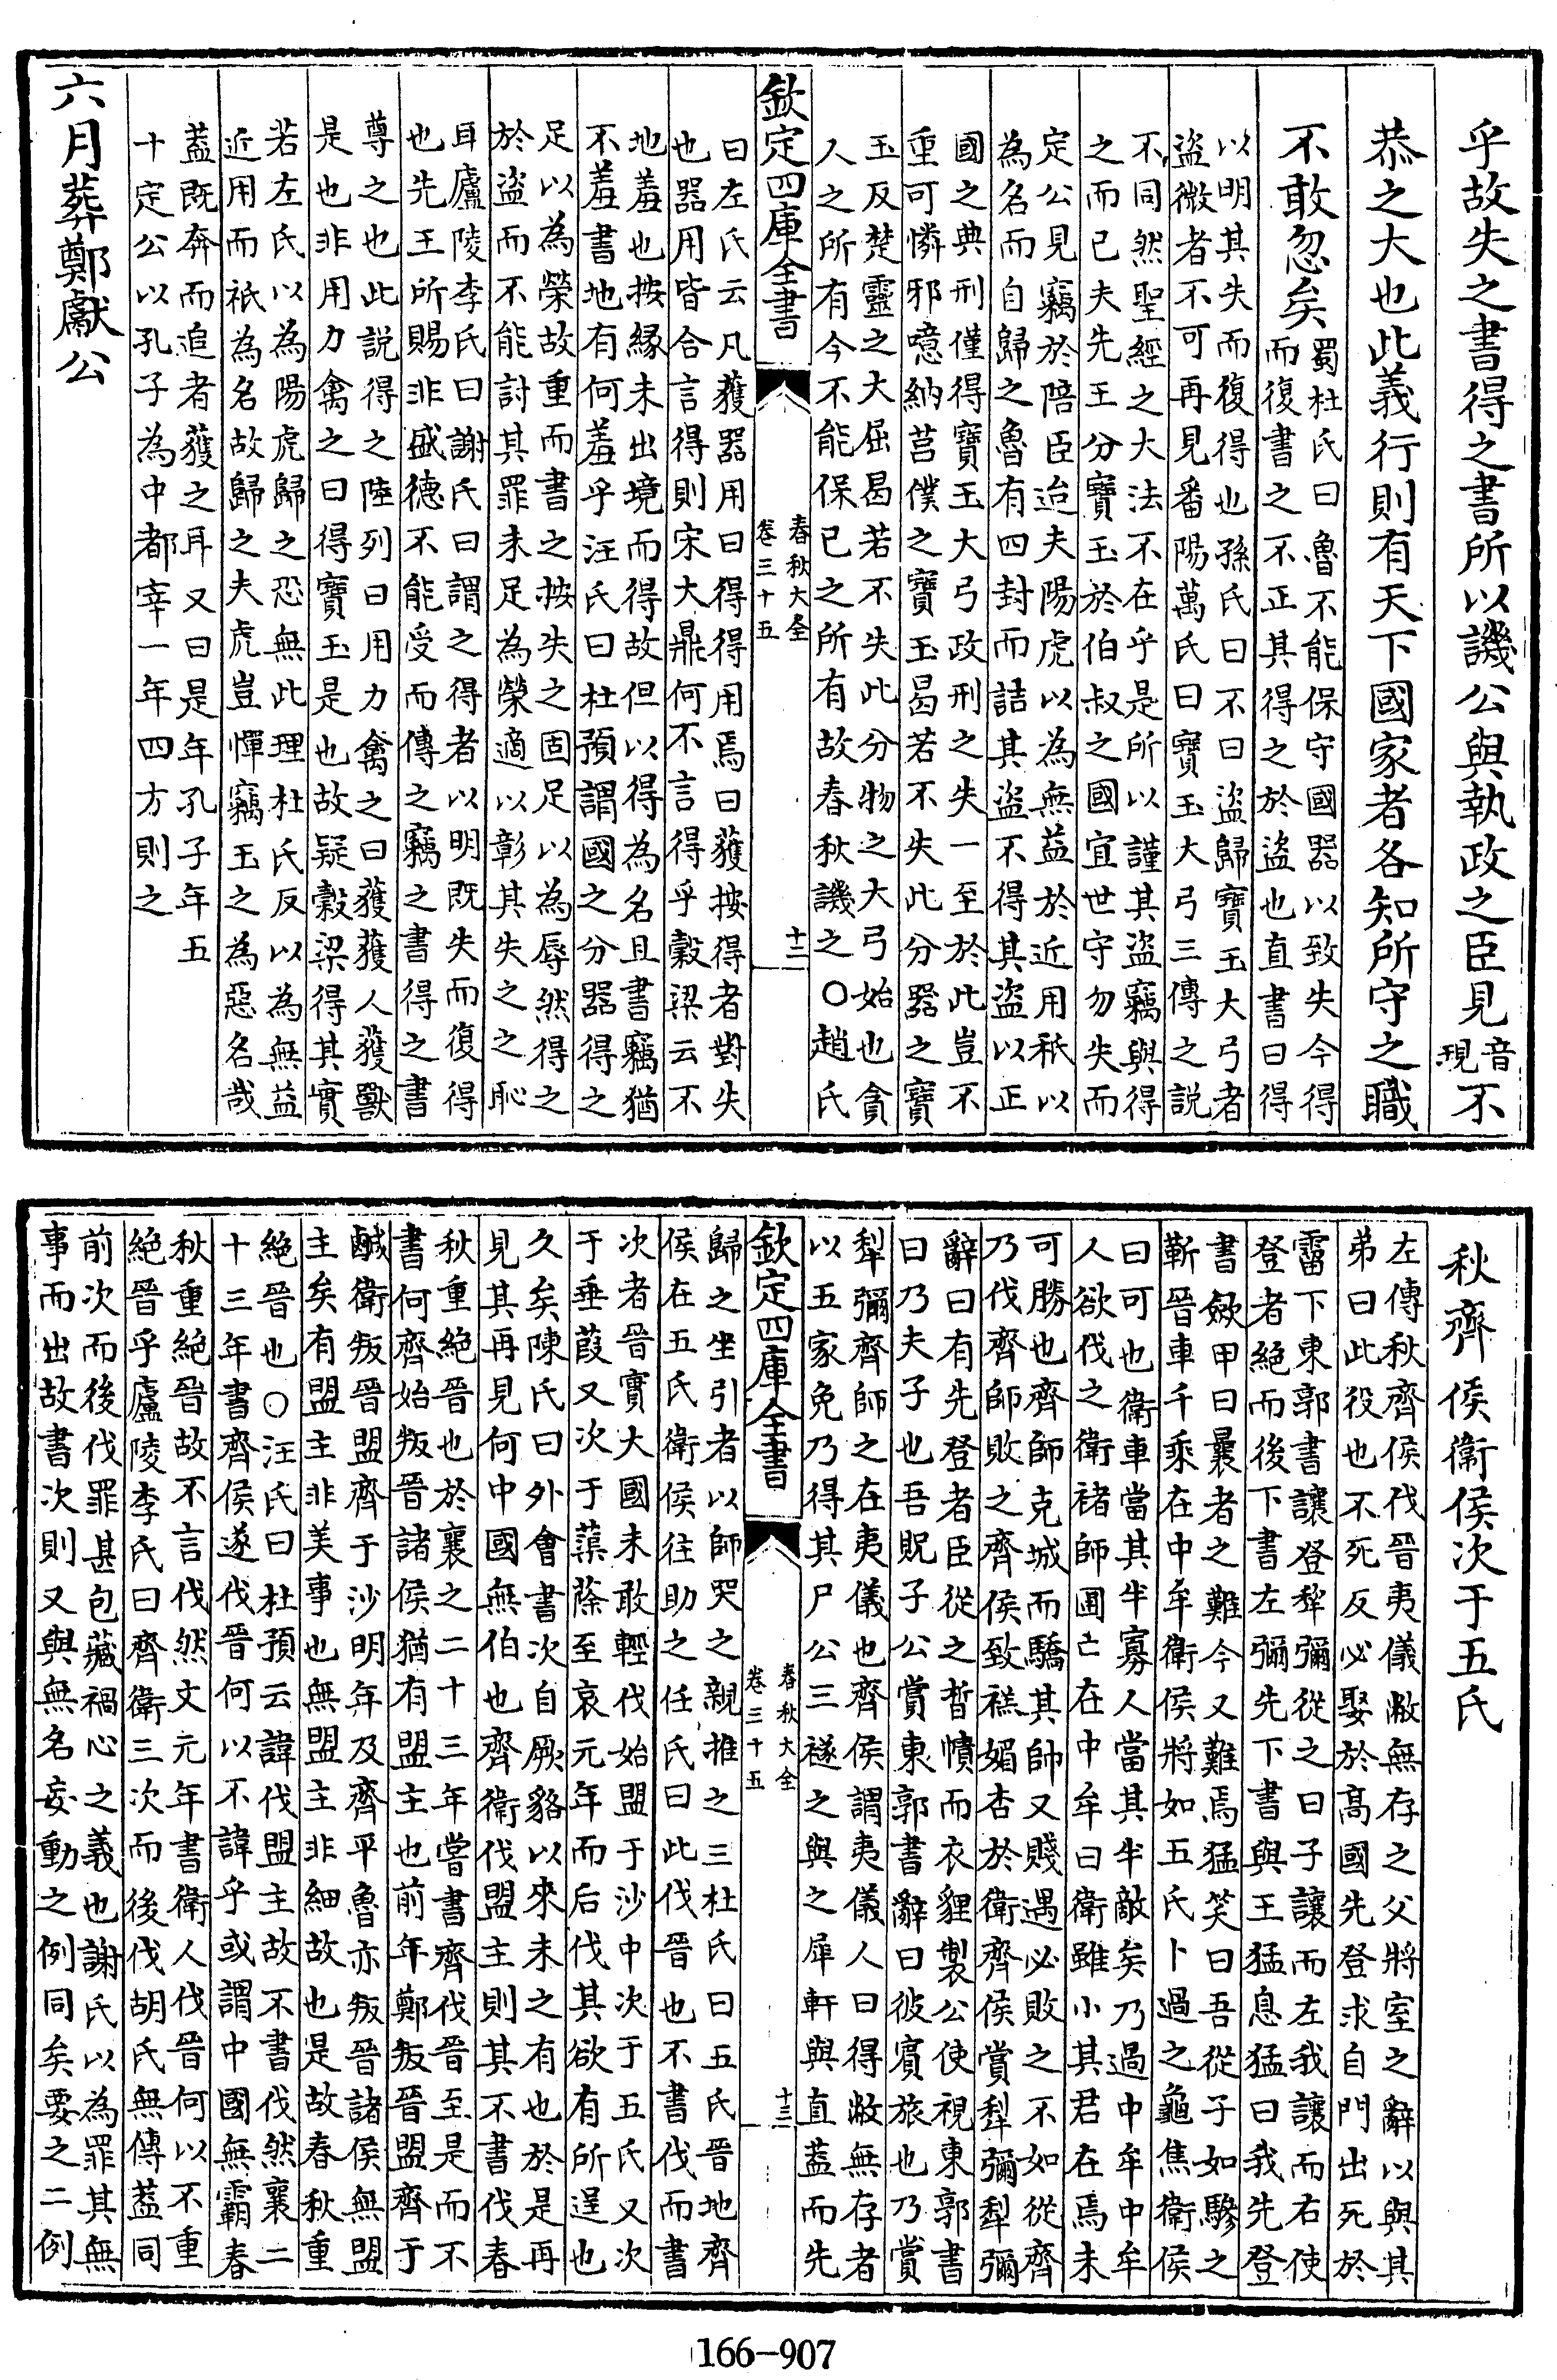 乎故失之書得之書所以譏公與執政之臣見音現不
恭之大也此義行則有天下國家者各知所守之職
不敢忽矣蜀杜氏曰魯不能保守國器以致失今得
而復書之不正其得之於盜也直書曰得
以明其失而復得也孫氏曰不曰盜歸寶玉大弓者
盜微者不可再見番陽萬氏曰寶玉大弓三傳之說
不同然聖經之大法不在乎是所以謹其盜竊與得
之而已夫先王分寶玉於伯叔之國宜世守勿失而
定公見竊於陪臣迨夫陽虎以為無益於近用秖以
為名而自歸之魯有四封而詰其盜不得其盜以正
國之典刑僅得寶玉大弓政刑之失一至於此豈不
重可憐邪噫納莒僕之寶玉曷若不失此分器之寶
玉反楚靈之大屈曷若不失此分物之大弓始也貪
人之所有今不能保已之所有故春秋譏之○趙氏
欽定四庫全書
春秋大全
卷三十五
十二
曰左氏云凡獲器用曰得得用焉曰獲按得者對失
也器用皆合言得則宋大鼎何不言得乎穀梁云不
地羞也按緣未出境而得故但以得為名且書竊猶
不羞書地有何羞乎汪氏曰杜預謂國之分器得之
足以為榮故重而書之按失之固足以為辱然得之
於盜而不能討其罪未足為榮適以彰其失之之恥
耳廬陵李氏曰謝氏曰謂之得者以明既失而復得
也先王所賜非盛德不能受而傳之竊之書得之書
尊之也此說得之陸列曰用力禽之曰獲獲人獲獸
是也非用力禽之曰得寶玉是也故疑穀梁得其實
若左氏以為陽虎歸之恐無此理杜氏反以為無益
近用而祇為名故歸之夫虎豈憚竊玉之為惡名哉
蓋既奔而追者獲之耳又曰是年孔子年五
十定公以孔子為中都宰一年四方則之
六月葬鄭獻公
秋齊侯衛侯次于五氏
左傳秋齊侯伐晉夷儀敝無存之父將室之辭以與其
弟曰此役也不死反必娶於高國先登求自門出死於
霤下東郭書讓登犂彌從之曰子讓而左我讓而右使
登者絕而後下書左彌先下書與王猛息猛曰我先登
書斂甲曰曩者之難今又難焉猛笑曰吾從子如驂之
靳晉車千乘在中牟衛侯將如五氏卜過之龜焦衛侯
曰可也衛車當其半寡人當其半敵矣乃過中牟中牟
人欲伐之衛褚師圃亡在中牟曰衛雖小其君在焉未
可勝也齊師克城而驕其帥又賤遇必敗之不如從齊
乃伐齊師敗之齊侯致禚媚杏於衛齊侯賞犂彌犂彌
辭曰有先登者臣從之皙幘而衣貍製公使視東郭書
曰乃夫子也吾貺子公賞東郭書辭曰彼賓旅也乃賞
犂彌齊師之在夷儀也齊侯謂夷儀人曰得敝無存者
以五家免乃得其尸公三襚之與之犀軒與直蓋而先
欽定四庫全書
春秋大全
卷三十五
十三
歸之坐引者以師哭之親推之三杜氏曰五氏晉地齊
侯在五氏衛侯往助之任氏曰此伐晉也不書伐而書
次者晉實大國未敢輕伐始盟于沙中次于五氏又次
于垂葭又次于蕖蒢至哀元年而后伐其欲有所逞也
久矣陳氏曰外會書次自厥貉以來未之有也於是再
見其再見何中國無伯也齊衛伐盟主則其不書伐春
秋重絕晉也於襄之二十三年嘗書齊伐晉至是而不
書何齊始叛晉諸侯猶有盟主也前年鄭叛晉盟齊于
鹹衛叛晉盟齊于沙明年及齊平魯亦叛晉諸侯無盟
主矣有盟主非美事也無盟主非細故也是故春秋重
絕晉也○汪氏曰杜預云諱伐盟主故不書伐然襄二
十三年書齊侯遂伐晉何以不諱乎或謂中國無霸春
秋重絕晉故不言伐然文元年書衛人伐晉何以不重
絕晉乎廬陵李氏曰齊衛三次而後伐胡氏無傳蓋同
前次而後伐罪甚包藏禍心之義也謝氏以為罪其無
事而出故書次則又與無名妄動之例同矣要之二例
166-907